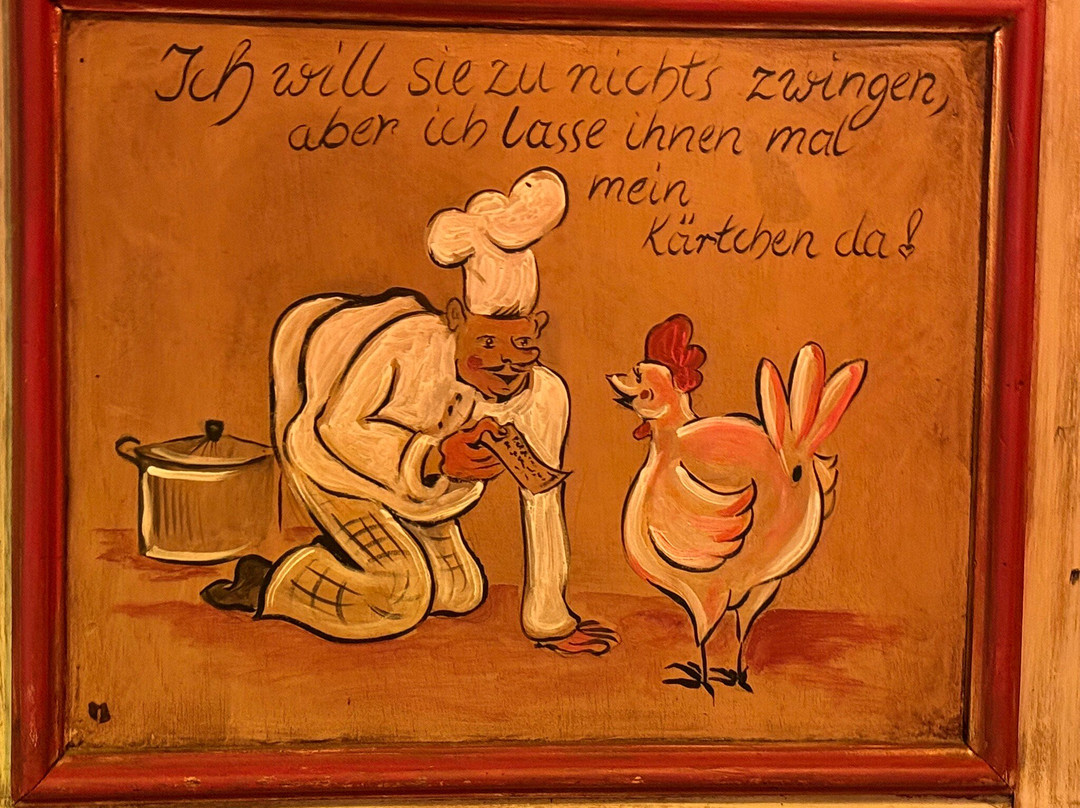 Ich will sie zu nichts zwingen,
aber ich lasse ihnen mal
mein
Kärtchen da!